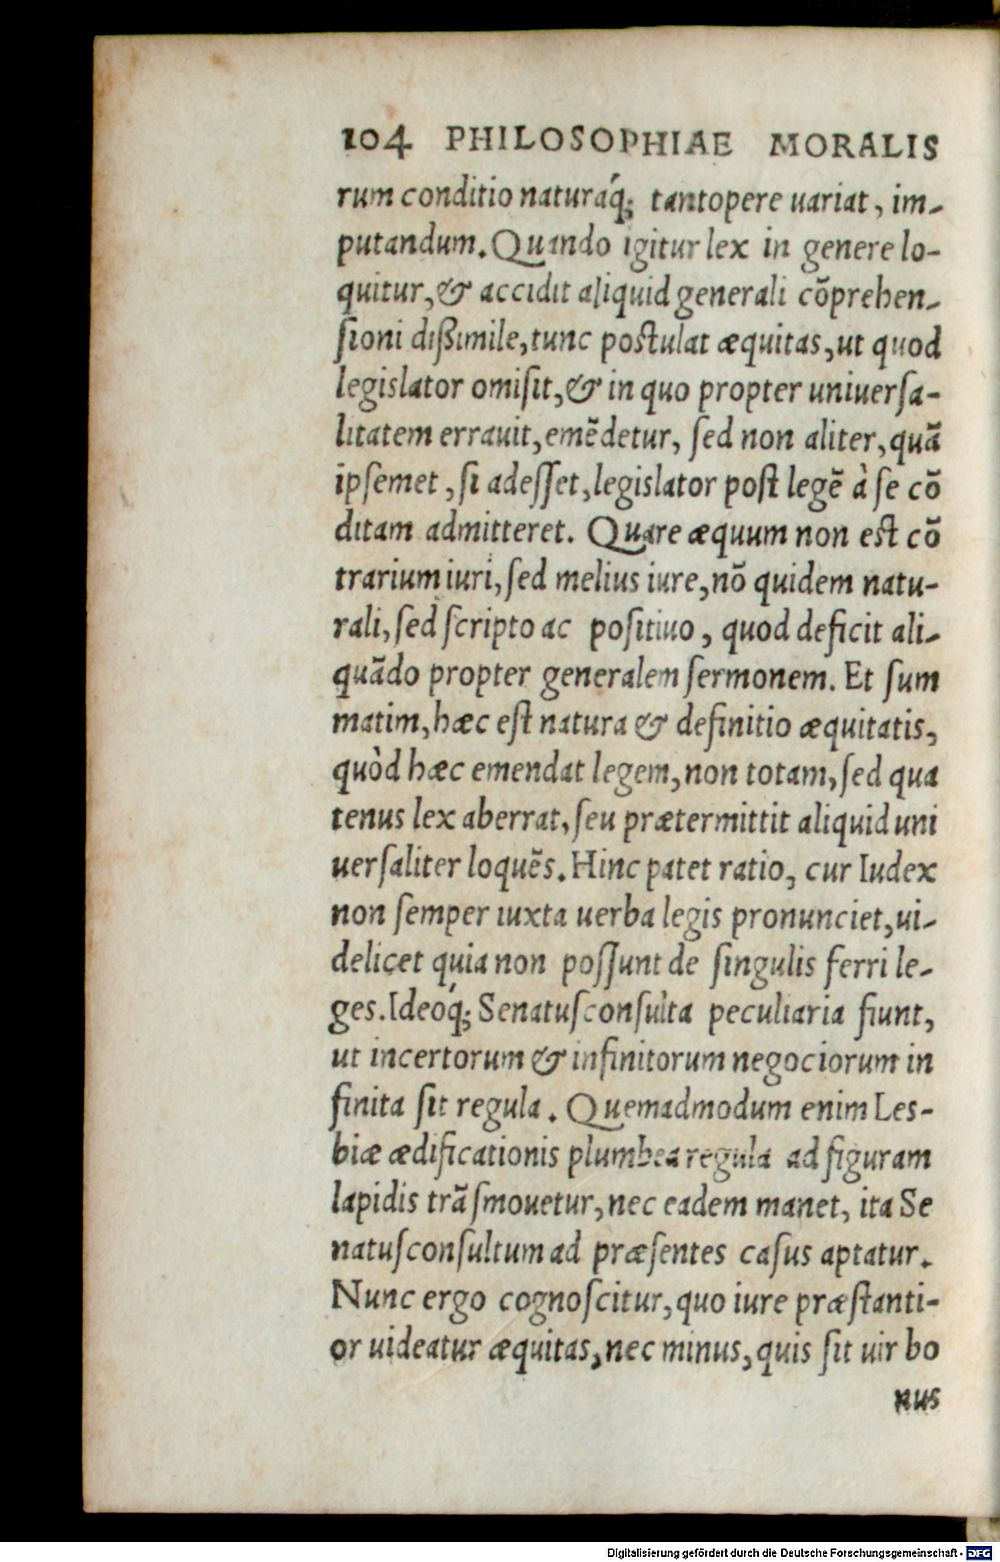 104 PHILOSOPHIAE MORALIS
rum conditio naturáq; tantopere uariat, im-
putandum. Quando igitur lex in genere lo-
quitur, & accidit aliquid generali cõprehen-
ſioni dißimile, tunc poſtulat æquitas, ut quod
legislator omiſit, & in quo propter uniuerſa-
litatem errauit, emẽdetur, ſed non aliter, quã
ipſemet, ſi adeſſet, legislator poſt legẽ à ſe cõ
ditam admitteret. Quare æquum non eſt cõ
trarium iuri, ſed melius iure, nõ quidem natu-
rali, ſed ſcripto ac poſitiuo, quod deficit ali-
quãdo propter generalem ſermonem. Et ſum
matim, hæc eſt natura & definitio æquitatis,
quòd hæc emendat legem, non totam, ſed qua
tenus lex aberrat, ſeu prætermittit aliquid uni
uerſaliter loquẽs. Hinc patet ratio, cur Iudex
non ſemper iuxta uerba legis pronunciet, ui-
delicet quia non poſſunt de ſingulis ferri le-
ges. Ideóq; Senatuſconſulta peculiaria fiunt,
ut incertorum & infinitorum negociorum in
finita ſit regula. Quemadmodum enim Les-
biæ ædificationis plumbea regula ad figuram
lapidis trãſmouetur, nec eadem manet, ita Se
natuſconſultum ad præſentes caſus aptatur.
Nunc ergo cognoſcitur, quo iure præſtanti-
or uideatur æquitas, nec minus, quis ſit uir bo
nus
Digitalisierung gefördert durch die Deutsche Forschungsgemeinschaft - DFG